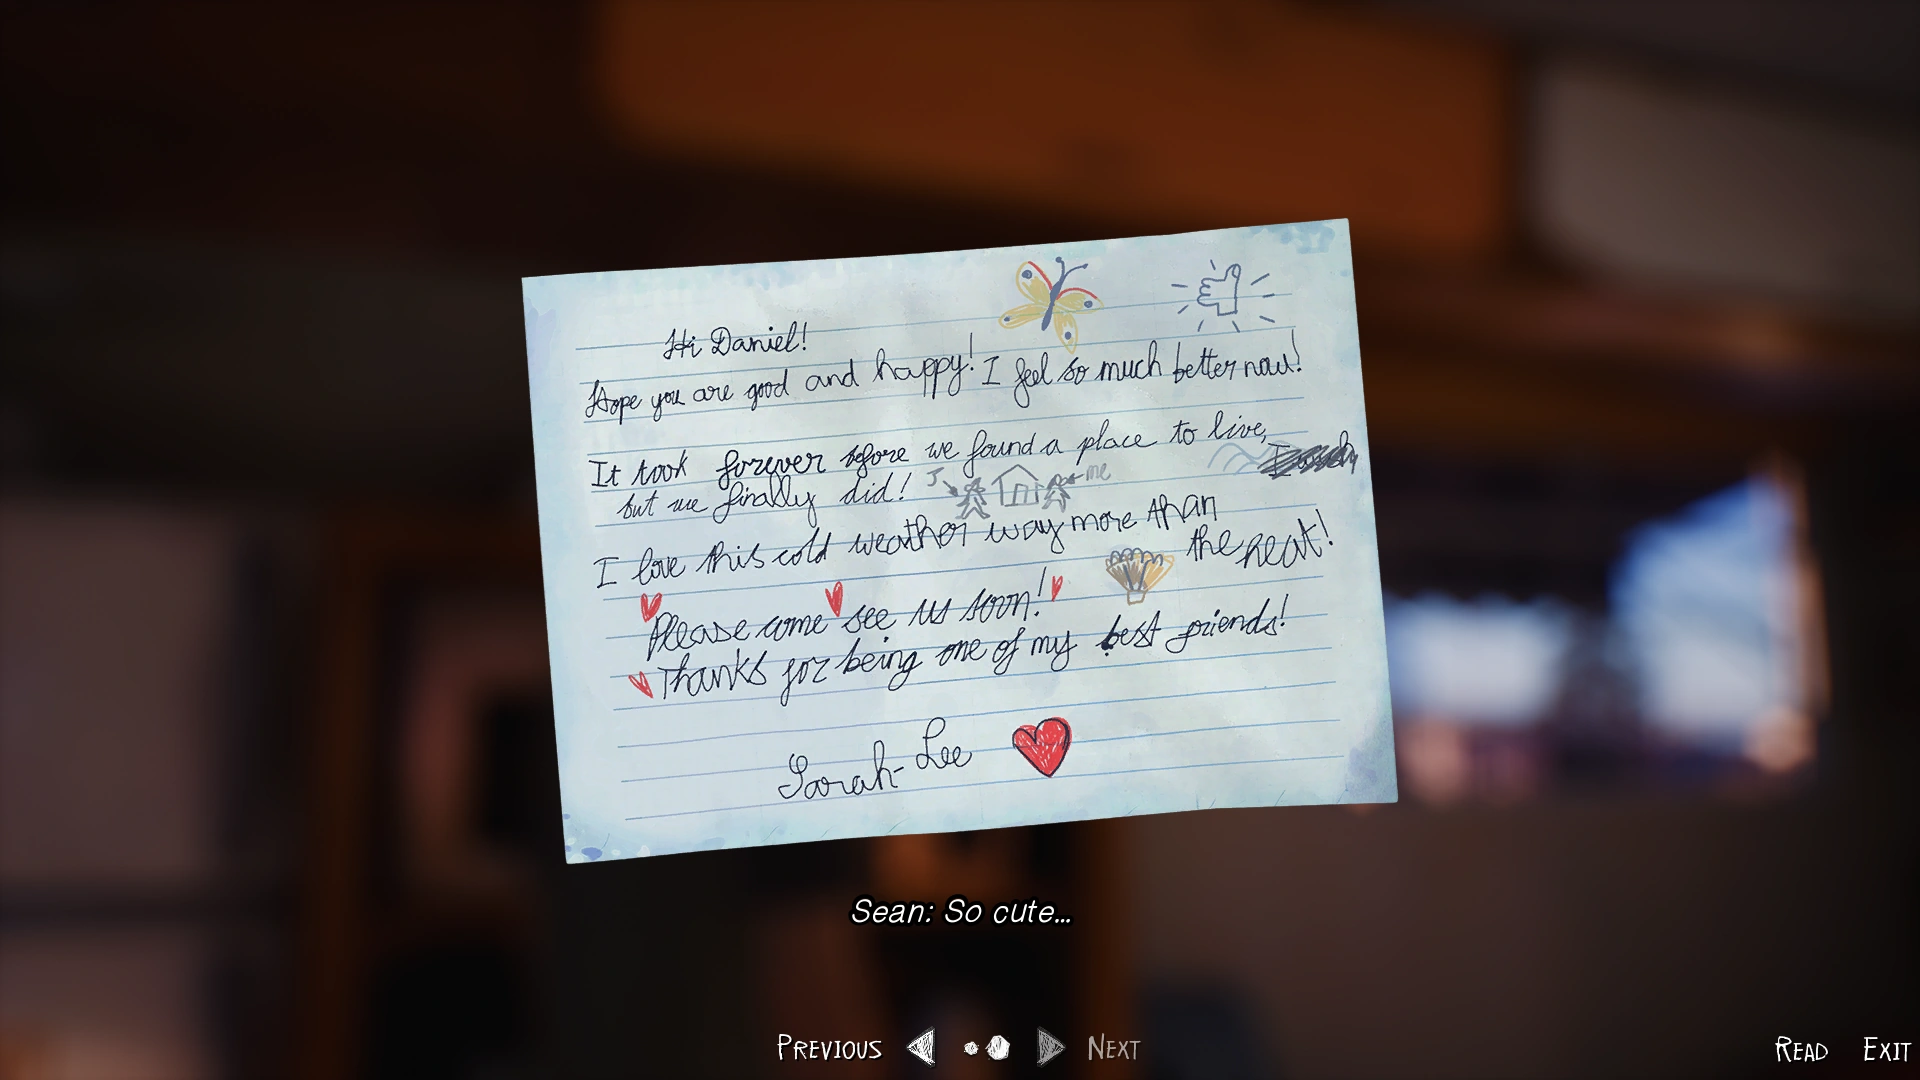 Hi Daniel!
Hope you are good and happy! I feel so much better now!
It took forever before we found a place to live,
but we finally did!
J me
I love this cold weather way more than
the heat!
Please come see us soon!
Thanks for being one of my best friends!
Sarah-Lee
Sean: So cute...
PREVIOUS NEXT
READ EXIT